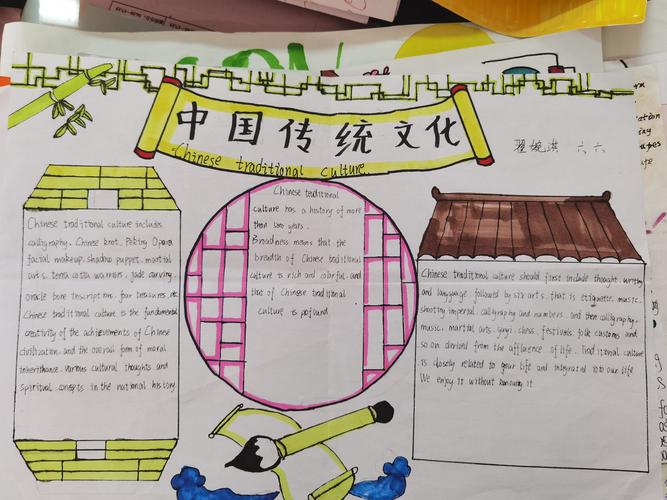 中国传统文化
Chinese traditional culture.
翟婉淇 六六
Chinese traditional culture includes
calligraphy. Chinese knot. Peking Opera
facial makeup. shadow puppet. martial
arts. terra cotta warriors. jade carving.
oracle bone inscription. four treasures. etc
Chinese traditional culture is the fundamental
creativity of the achievements of Chinese
civilization. and the overall form of moral
inheritance. various cultural thoughts and
spiritual concepts in the national history.
Chinese traditional
culture has a history of more
than years.
Broadness means that the
breadth of Chinese traditional
culture is rich and colorful. and
that of Chinese traditional
culture is profound
Chinese traditional culture should first include thought. writing
and language followed by six arts. that is etiquette. music.
shooting imperial. calligraphy and numbers. and then calligraphy.
music. martial arts. chess. festivals. folk customs and
so on derived from the affluence of life. Traditional culture
is closely related to your life and integrated into our life
We enjoy it without it